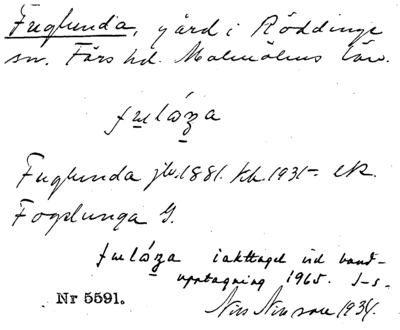 Fuglunda, gård i Röddinge
sn. Färs hd. Malmöhus län.
Fuglunda jbr. 1881. kk. 1931-. ek.
Foglunga G.
iakttaget vid band-
upptagning 1965. J-s.
Nr 5591.
Nils Nilsson 1934.